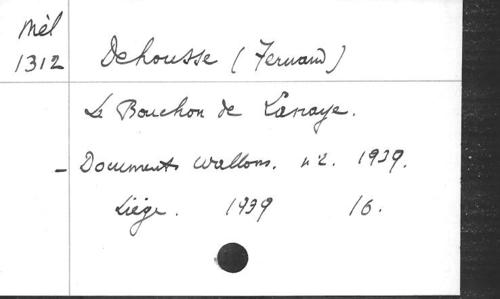 Mél
1312
Dehousse (Fernand)
Le Bouchon de Lanaye.
- Documents wallons. n°2. 1939.
Liège. 1939 16.